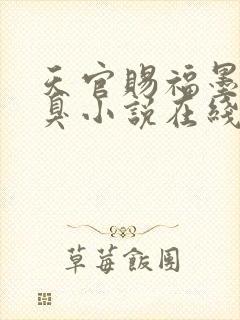 天官賜福墨
臭小說在綫
草莓飯團